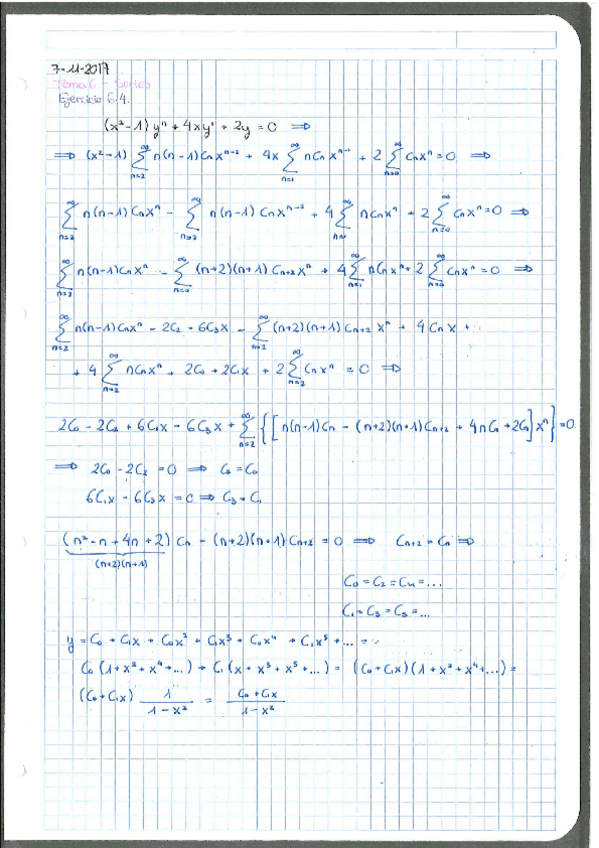 7-11-2017
Tema 6 - Series
Ejercicio 6.4.
(x²-1)y" + 4xy' + 2y = 0 ⇒
⇒ (x²-1) ∑_{n=2}^∞ n(n-1)Cₙxⁿ⁻² + 4x ∑_{n=1}^∞ nCₙxⁿ⁻¹ + 2 ∑_{n=0}^∞ Cₙxⁿ = 0 ⇒
∑_{n=2}^∞ n(n-1)Cₙxⁿ - ∑_{n=2}^∞ n(n-1)Cₙxⁿ⁻² + 4 ∑_{n=1}^∞ nCₙxⁿ + 2 ∑_{n=0}^∞ Cₙxⁿ = 0 ⇒
∑_{n=2}^∞ n(n-1)Cₙxⁿ - ∑_{n=0}^∞ (n+2)(n+1)Cₙ₊₂xⁿ + 4 ∑_{n=1}^∞ nCₙxⁿ + 2 ∑_{n=0}^∞ Cₙxⁿ = 0 ⇒
∑_{n=2}^∞ n(n-1)Cₙxⁿ - 2C₂ - 6C₃x - ∑_{n=2}^∞ (n+2)(n+1)Cₙ₊₂xⁿ + 4C₁x +
+ 4 ∑_{n=2}^∞ nCₙxⁿ + 2C₀ + 2C₁x + 2 ∑_{n=2}^∞ Cₙxⁿ = 0 ⇒
2C₀ - 2C₂ + 6C₁x - 6C₃x + ∑_{n=2}^∞ {[n(n-1)Cₙ - (n+2)(n+1)Cₙ₊₂ + 4nCₙ + 2Cₙ]xⁿ} = 0
⇒ 2C₀ - 2C₂ = 0 ⇒ C₂ = C₀
6C₁x - 6C₃x = 0 ⇒ C₃ = C₁
(n² - n + 4n + 2)Cₙ - (n+2)(n+1)Cₙ₊₂ = 0 ⇒ Cₙ₊₂ = Cₙ ⇒
(n+2)(n+1)
C₀ = C₂ = C₄ = ...
C₁ = C₃ = C₅ = ...
y = C₀ + C₁x + C₀x² + C₁x³ + C₀x⁴ + C₁x⁵ + ... =
C₀(1 + x² + x⁴ + ...) + C₁(x + x³ + x⁵ + ...) = (C₀ + C₁x)(1 + x² + x⁴ + ...) =
(C₀ + C₁x) 1/(1-x²) = (C₀ + C₁x)/(1-x²)